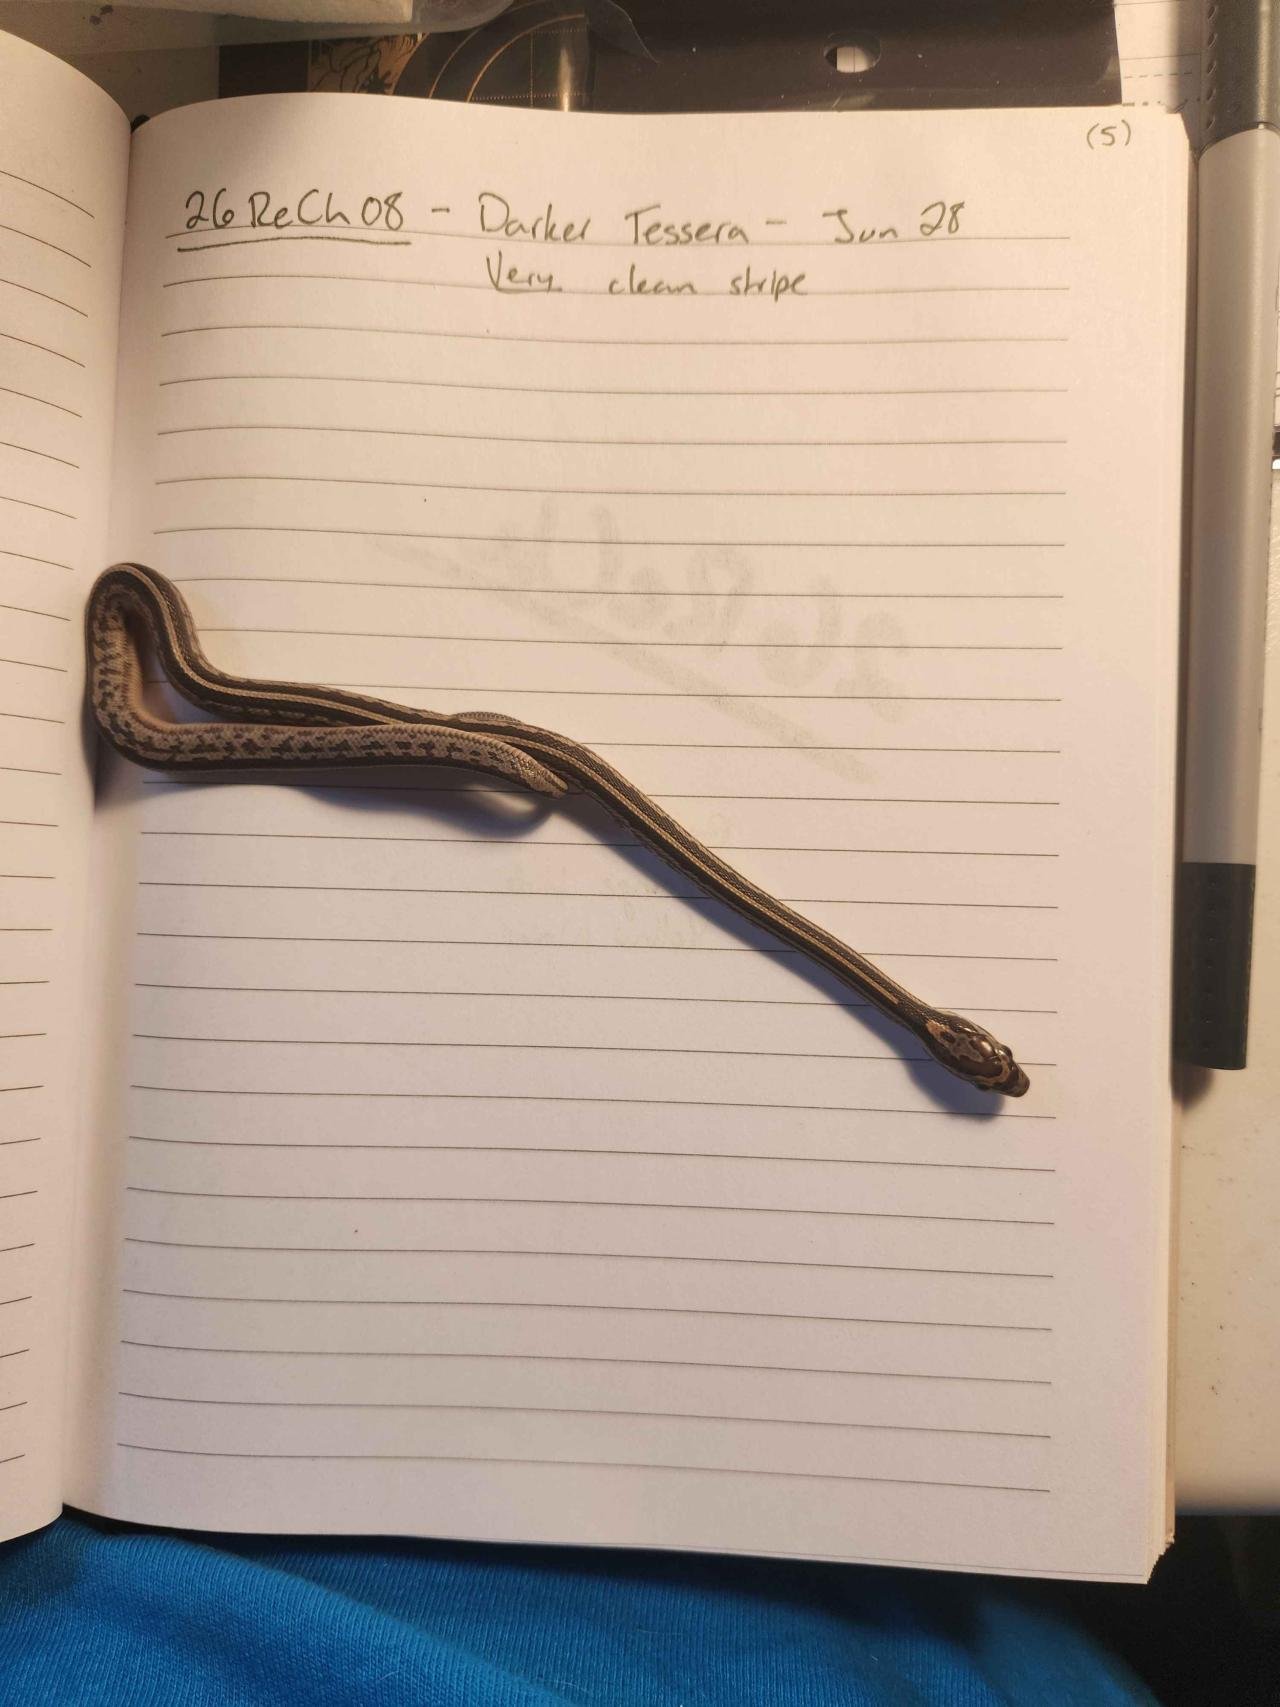 (5)
26ReCh08 - Darker Tessera - Jun 28
Very clean stripe